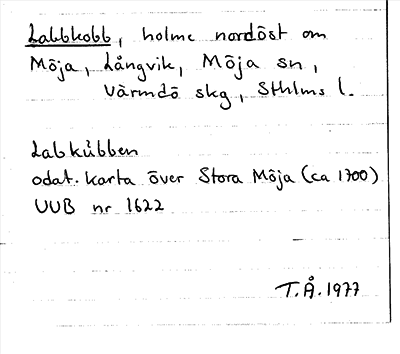 Labbkobb, holme nordöst om
Möja, Långvik, Möja sn,
Värmdö skg, Sthlms l.
Labkůbben
odat. karta över Stora Möja (ca 1700)
UUB nr 1622
T.Å. 1977